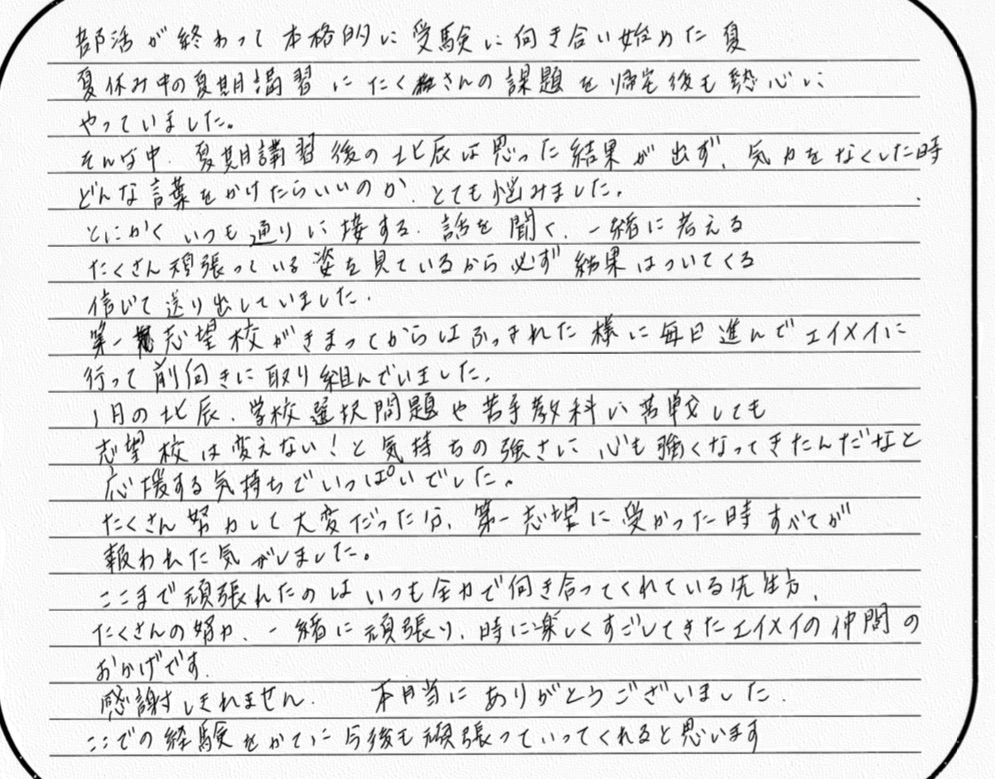 部活が終わって本格的に受験に向き合い始めた夏
夏休み中の夏期講習にたくさんの課題を帰宅後も熱心に
やっていました。
そんな中、夏期講習後の北辰は思った結果が出ず、気力をなくした時
どんな言葉をかけたらいいのか、とても悩みました。
とにかくいつも通りに接する、話を聞く、一緒に考える
たくさん頑張っている姿を見ているから必ず結果はついてくる
信じて送り出していました。
第一志望校がきまってからはふっきれた様に毎日進んでエイメイに
行って前向きに取り組んでいました。
1月の北辰、学校選択問題や苦手教科に苦戦しても
志望校は変えない!と気持ちの強さに心も強くなってきたんだなと
応援する気持ちでいっぱいでした。
たくさん努力して大変だった分、第一志望に受かった時すべてが
報われた気がしました。
ここまで頑張れたのはいつも全力で向き合ってくれている先生方、
たくさんの努力、一緒に頑張り、時に楽しくすごしてきたエイメイの仲間の
おかげです。
感謝しきれません。 本当にありがとうございました。
ここでの経験をかてに今後も頑張っていってくれると思います